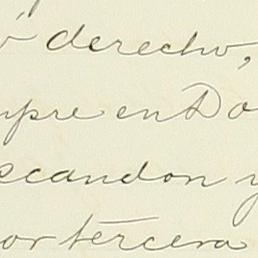 ó derecho,
mpre en Do
scandon y
or tercera